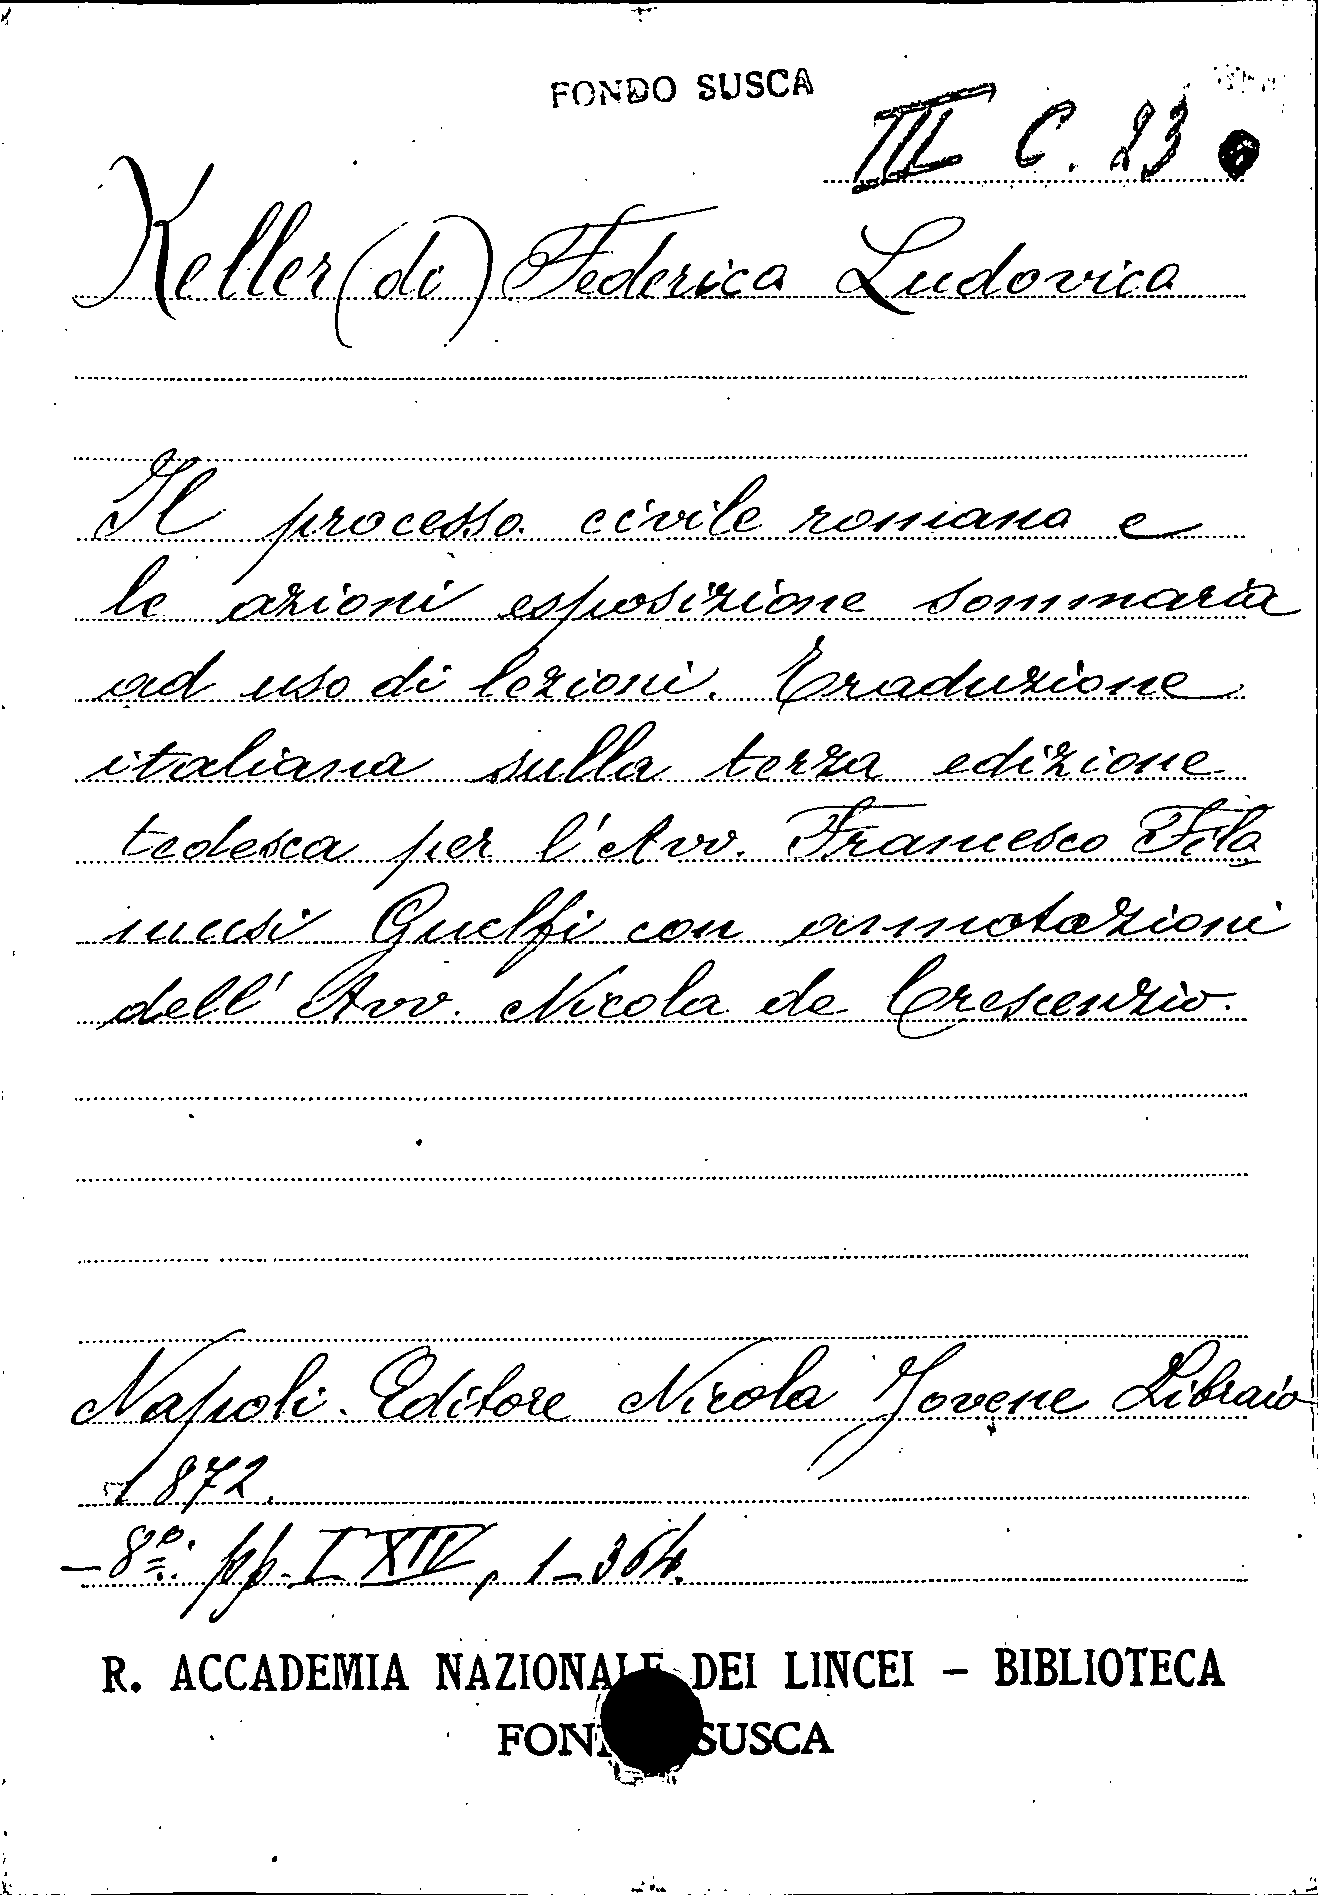 FONDO SUSCA
III C. 23
Keller (di) Federico Ludovico
Il processo civile romano e
le azioni esposizione sommaria
ad uso di lezioni. Traduzione
italiana sulla terza edizione
tedesca per l'Avv. Francesco Filo
musi Guelfi con annotazioni
dell'Avv. Nicola de Crescenzio.
Napoli. Editore Nicola Jovene Libraio
1872.
- 8º: pp. I XIV, 1-364.
R. ACCADEMIA NAZIONALE DEI LINCEI – BIBLIOTECA
FONDO SUSCA